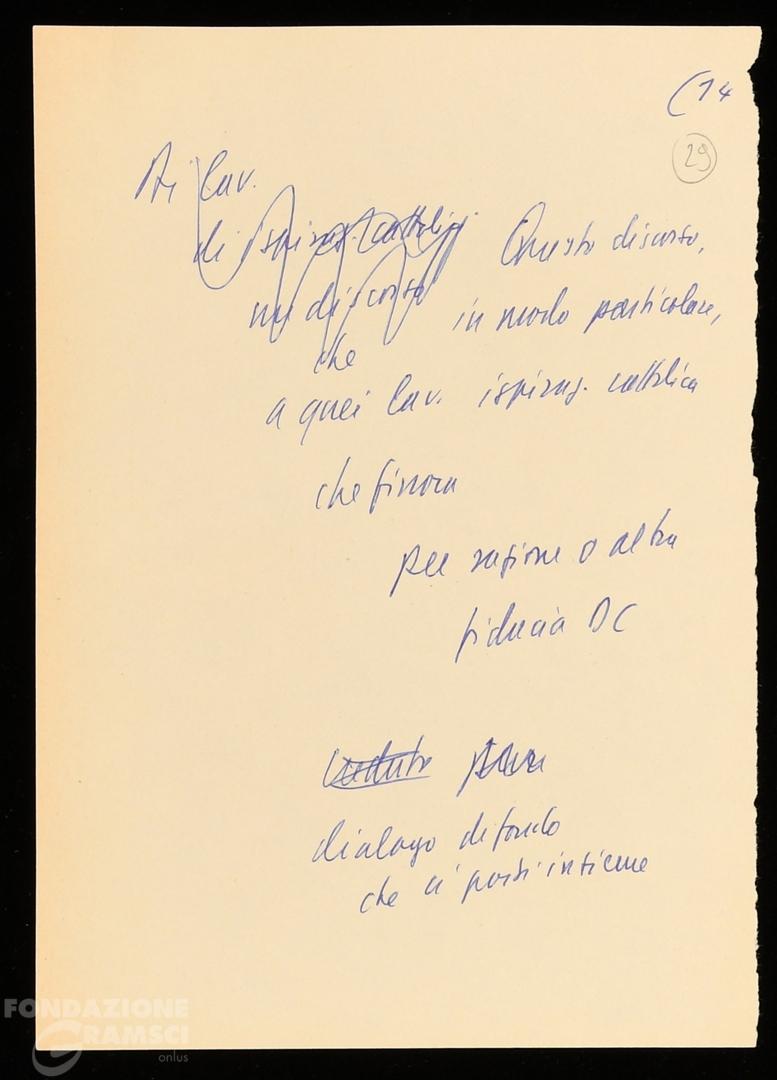 (14
29
Ai lav.
di ispiraz. cattolica
un discorso
che
Questo discorso,
in modo particolare,
a quei lav. ispiraz. cattolica
che finora
per ragione o altra
fiducia DC
dialogo di fondo
che ci porti insieme
FONDAZIONE
GRAMSCI
onlus